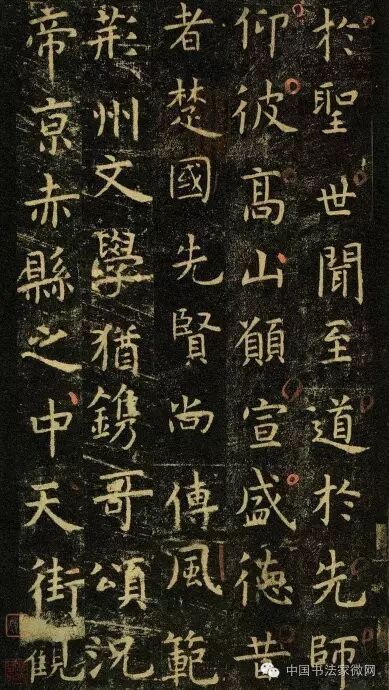 於聖世聞至道於先師
仰彼高山願宣盛德昔
者楚國先賢尚傳風範
荊州文學猶鐫哥頌況
帝京赤縣之中天街觀
中国书法家微网